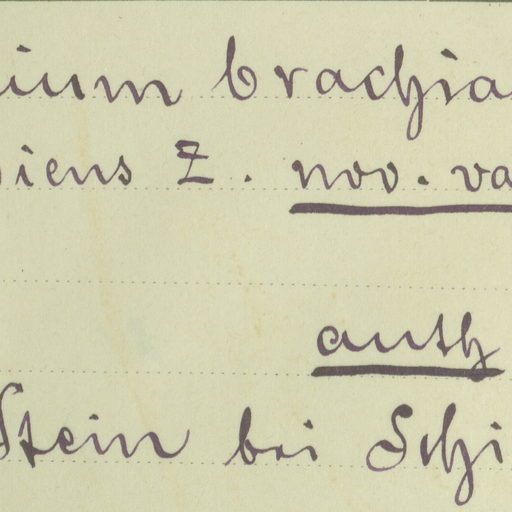 ium brachia
iens Z. nov. va
auth
Stein bei Schi